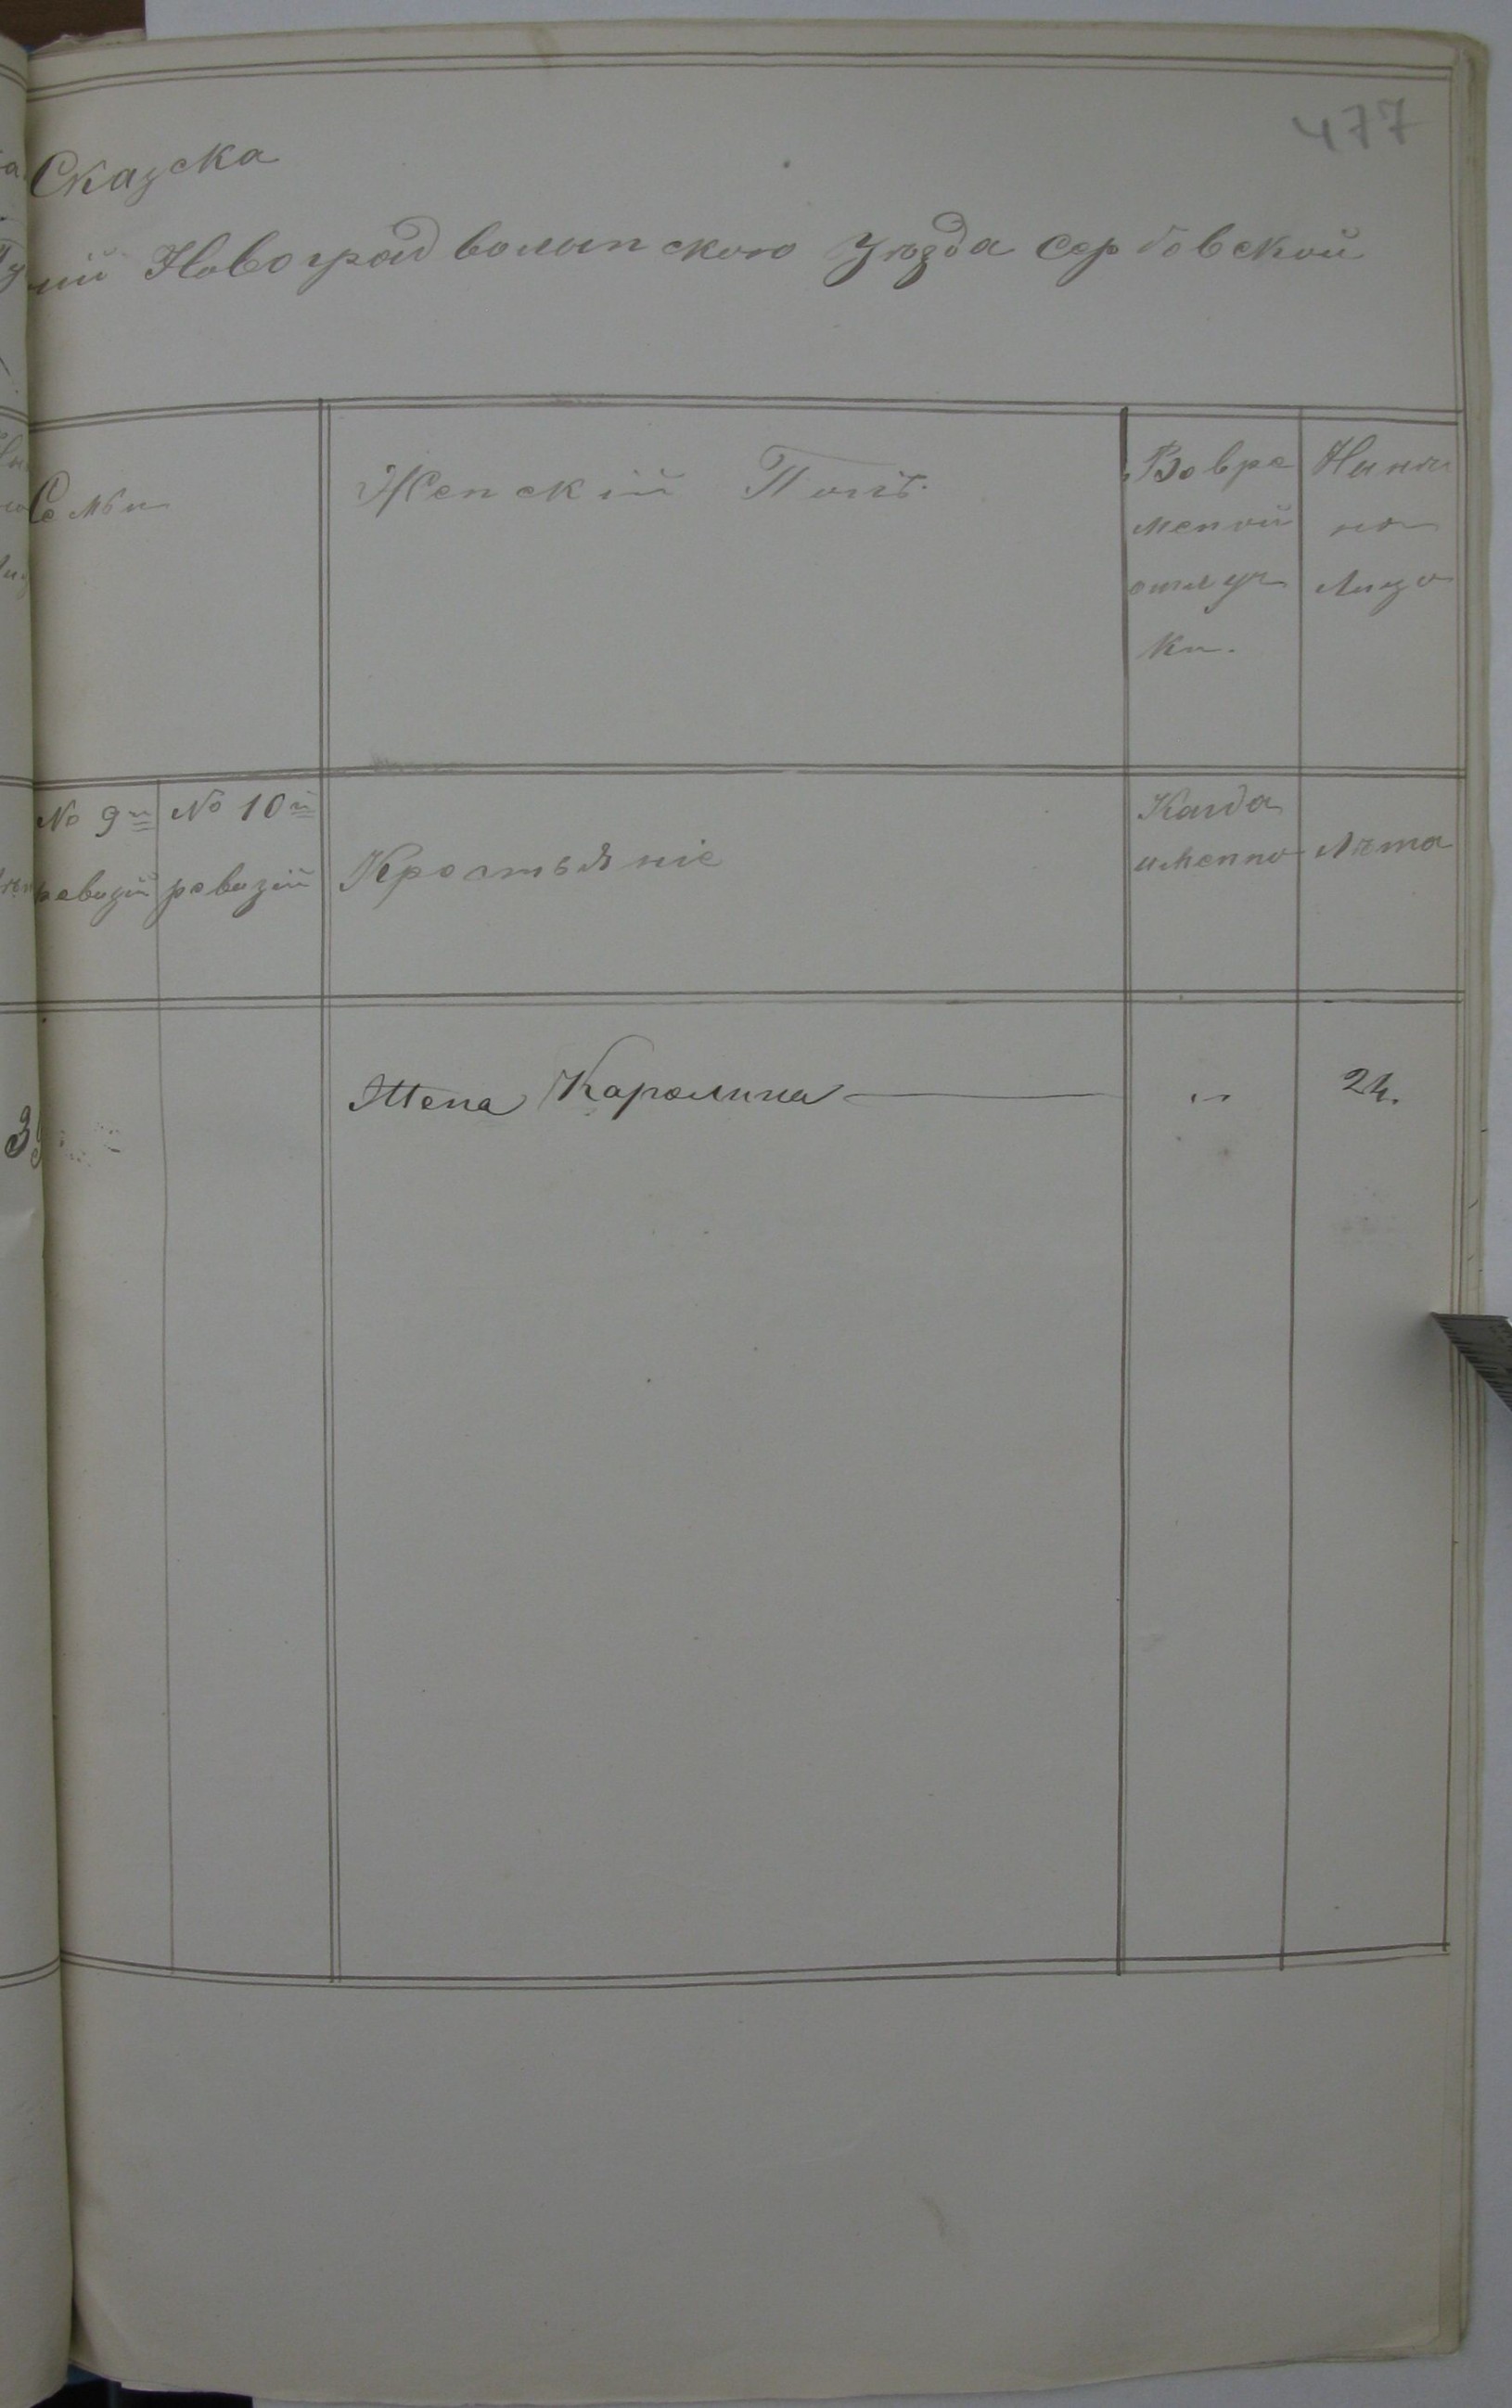 477
Сказска
ний Новоград волынского Уѣзда сербовской
Семьи
Женскій Полъ.
Вовре
меной
отлуч
ки.
Нынѣ
на
Лицо
№ 9й
ревизій
№ 10й
ревизій
Крестьяніе
Кагда
именно
Лѣта
Жена Каролина
"
24.